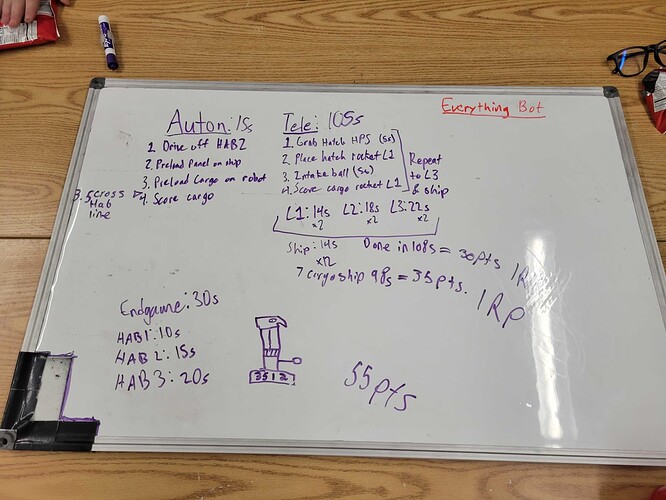 Everything Bot
Auton: 15s
1. Drive off HAB2
2. Preload Panel on ship
3. Preload Cargo on robot
3.5 cross Hab line
4. Score cargo
Tele: 105s
1. Grab Hatch HPS (5s)
2. Place hatch rocket L1
3. Intake ball (5s)
4. Score cargo rocket L1
Repeat
to L3
& ship
L1: 14s L2: 18s L3: 22s
x2 x2 x2
Ship: 14s
x12
Done in 108s = 30pts 1R
7 cargoship 98s = 35pts.
1 RP
Endgame: 30s
HAB1: 10s
HAB 2: 15s
HAB 3: 20s
3512
55pts